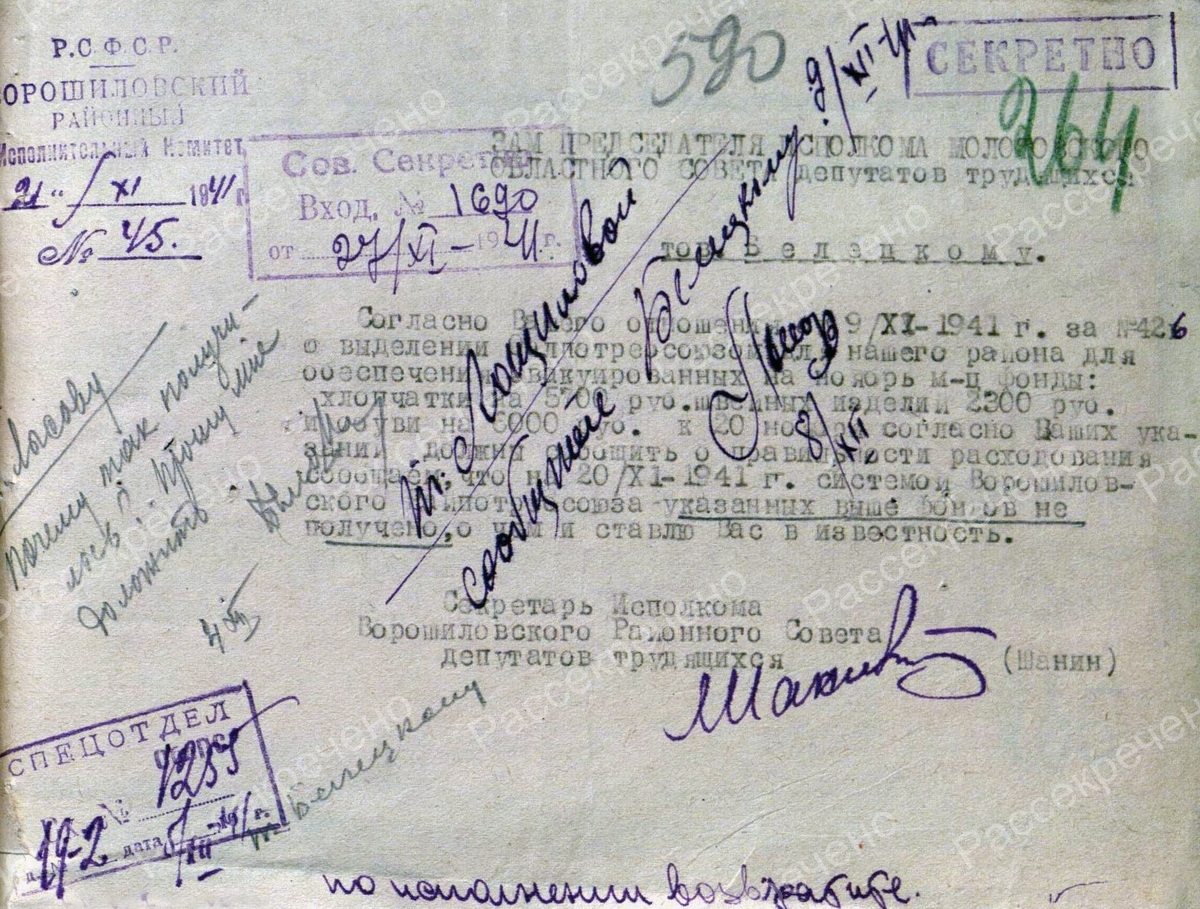 Р.С.Ф.С.Р.
ОРОШИЛОВСКИЙ
РАЙОННЫЙ
Исполнительный Комитет
21 " XI 1941 г
№ 45.
Сов. Секретно
Вход. № 1690
от 27/XI - 1941 г.
590
9/XII-41
СЕКРЕТНО
264
ЗАМ ПРЕДСЕДАТЕЛЯ ИСПОЛКОМА МОЛОТОВСКОГО
ОБЛАСТНОГО СОВЕТА депутатов трудящихся
тов. Белецкому.
Согласно Вашего отношения 9/XI-1941 г. за №426
о выделении нашего района для
обеспечения эвикуированных на ноябрь м-ц фонды:
хлопчатки на 5700 руб. швейных изделий 2300 руб.
и обуви на 6000 руб. к 20 ноября согласно Ваших ука-
заний должны сообщить о правильности расходования
сообщаем, что на 20/XI-1941 г. системой Ворошилов-
ского союза указанных выше фондов не
получено, о чем и ставлю Вас в известность.
Секретарь Исполкома
Ворошиловского Районного Совета
депутатов трудящихся (Шанин)
сообщите Белецкому
8/XII
Почему так получи-
лось? Прошу мне
доложить
4/XII
СПЕЦОТДЕЛ
№ 1255
дата 5/XII-41 г.
т Белецкому
по исполнении возвратите.
Рассекречено